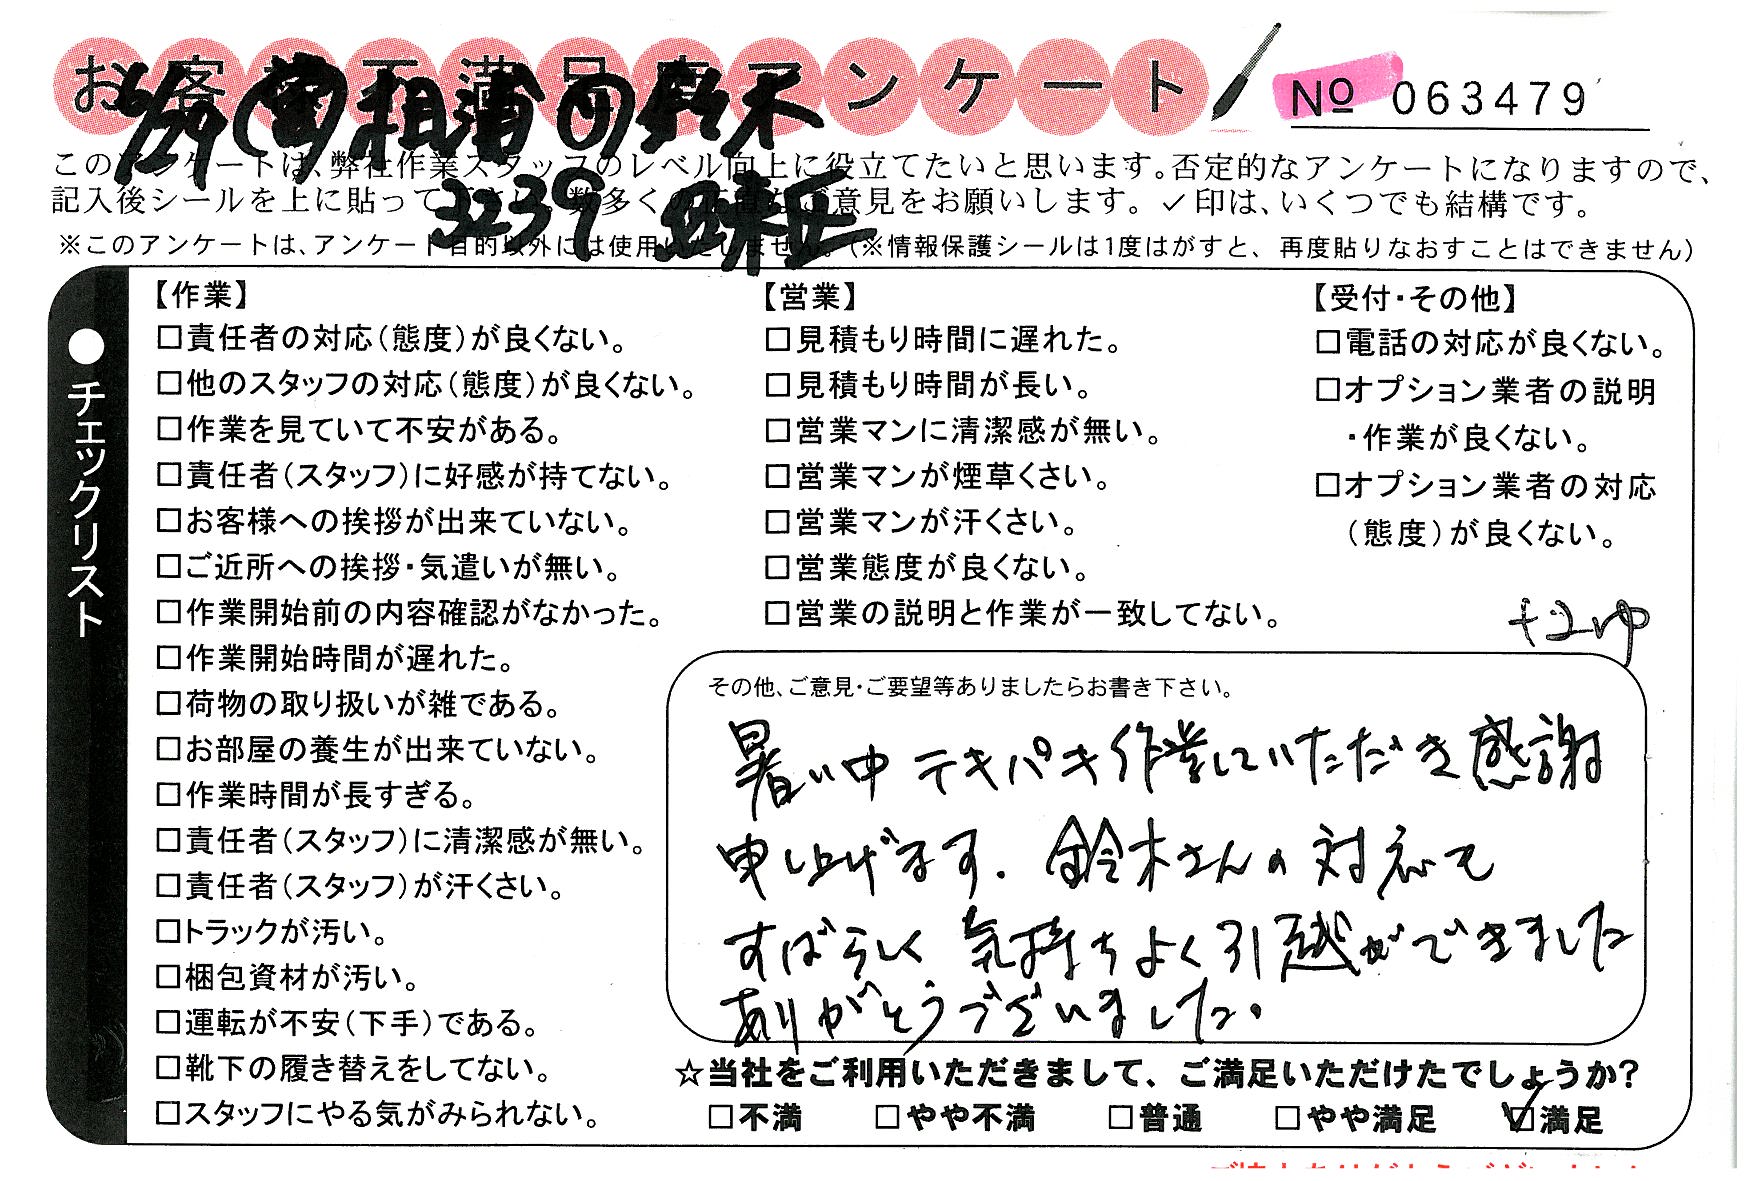 お客様不満足度アンケート
No 063479
6/29 (営)相浦 の) 鈴木
3239
このアンケートは、弊社作業スタッフのレベル向上に役立てたいと思います。否定的なアンケートになりますので、
記入後シールを上に貼って下さい。数多くの正直なご意見をお願いします。✓印は、いくつでも結構です。
※このアンケートは、アンケート目的以外には使用いたしません。(※情報保護シールは1度はがすと、再度貼りなおすことはできません)
●チェックリスト
【作業】
□責任者の対応(態度)が良くない。
□他のスタッフの対応(態度)が良くない。
□作業を見ていて不安がある。
□責任者(スタッフ)に好感が持てない。
□お客様への挨拶が出来ていない。
□ご近所への挨拶・気遣いが無い。
□作業開始前の内容確認がなかった。
□作業開始時間が遅れた。
□荷物の取り扱いが雑である。
□お部屋の養生が出来ていない。
□作業時間が長すぎる。
□責任者(スタッフ)に清潔感が無い。
□責任者(スタッフ)が汗くさい。
□トラックが汚い。
□梱包資材が汚い。
□運転が不安(下手)である。
□靴下の履き替えをしてない。
□スタッフにやる気がみられない。
【営業】
□見積もり時間に遅れた。
□見積もり時間が長い。
□営業マンに清潔感が無い。
□営業マンが煙草くさい。
□営業マンが汗くさい。
□営業態度が良くない。
□営業の説明と作業が一致してない。
【受付・その他】
□電話の対応が良くない。
□オプション業者の説明
・作業が良くない。
□オプション業者の対応
(態度)が良くない。
その他、ご意見・ご要望等ありましたらお書き下さい。
暑い中 テキパキ作業していただき感謝
申し上げます. 鈴木さんの対応も
すばらしく 気持ちよく引越ができました
ありがとうございました.
☆当社をご利用いただきまして、ご満足いただけたでしょうか?
□不満 □やや不満 □普通 □やや満足 ☑満足